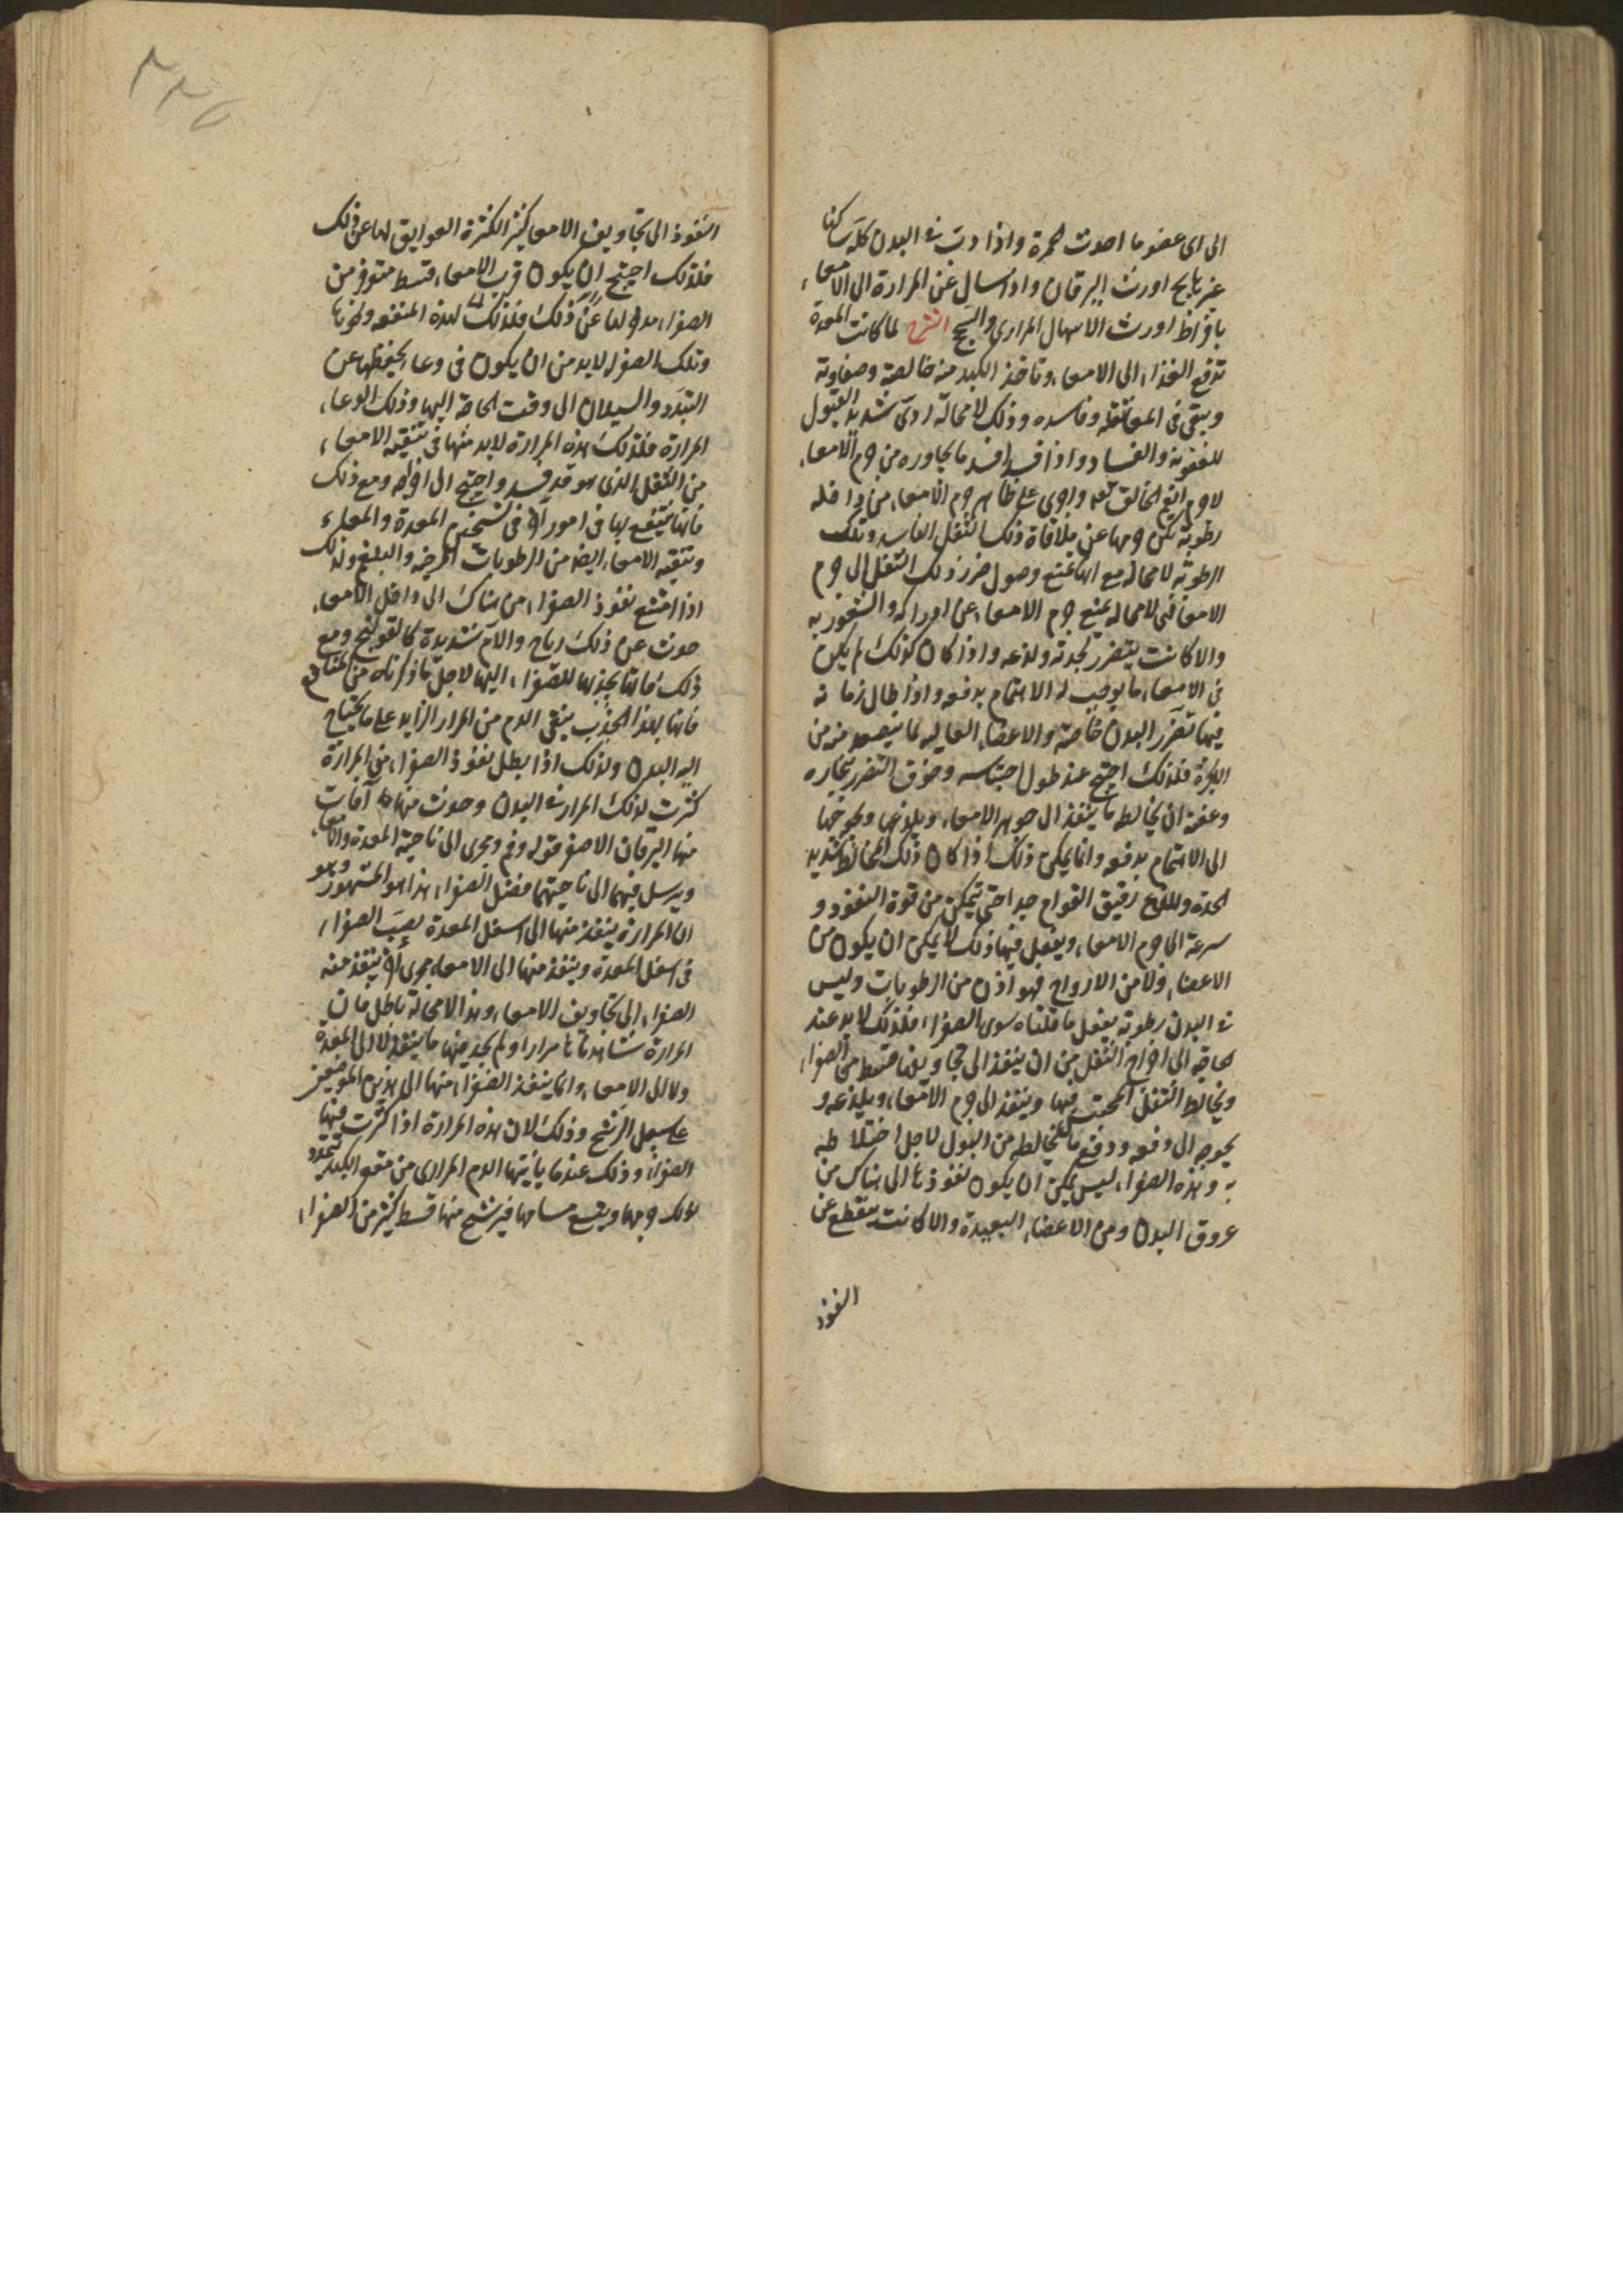 الى اى عضو ما احدث حمرة واذا دب فى البدن كله ساكنا
غير هايج اورث اليرقان واذا سال عن المرارة الى الامعاء
بافراط اورث الاسهال المرارى والسحج الشرح لما كانت المعدة
تدفع الغذاء الى الامعاء وتاخذ الكبد منه خالصه وصفاوته
ويبقى فى المعا ثفله وفاسده وذلك لا محالة ردى شديد القبول
للعفونة والفساد واذا فسد افسد ما يجاوره من جرم الامعاء
لاجرم انعم الخالق تعه واجرى على ظاهر جرم الامعاء من داخله
رطوبة تكن جرمها عن ملاقاة ذلك الثفل الفاسد وتلك
الرطوبة لا محاله مع انها تمنع وصول ضرر ذلك الثفل الى جرم
الامعا فهى لا محاله تمنع جرم الامعاء عن ادراكه والشعور به
والا كانت يتضرر بحدته ولذعه واذا كان كذلك لم يكن
فى الامعاء ما يوجب له الاهتمام بدفعه واذا طال زمانه
فيها تضرر البدن خاصة والاعضاء العاليه لما يتصعد منه من
الابخرة فلذلك احتيج عند طول احتباسه وخوف التضرر ببخاره
وعفنه ان يخالطه ما ينفذ الى جوهر الامعاء ويلذعها ويحوجها
الى الاهتمام بدفعه وانما يمكن ذلك اذا كان ذلك المخالط شديد
الحدة واللذع رقيق القوام جدا حتى يتمكن من قوة النفوذ و
سرعة الى جرم الامعاء ويفعل فيها ذلك لا يمكن ان يكون من
الاعضاء ولا من الارواح فهو اذن من الرطوبات وليس
فى البدن رطوبة يفعل ما قلناه سوى الصفراء فلذلك لا بد عند
الحاجة الى اخراج الثفل من ان ينفذ الى تجاويفها قسط من الصفراء
ويخالط الثفل المحتبس فيها وينفذ الى جرم الامعاء ويلذعه و
يحوجه الى دفعه ودفع ما يخالطه من البول لاجل اختلاطه
به وهذه الصفراء ليس يمكن ان يكون نفوذها الى هناك من
عروق البدن ومن الاعضاء البعيدة والا كانت ينقطع عن
النفوذ
النفوذ الى تجاويف الامعا كثيرا لكثرة العوايق لها عن ذلك
فلذلك احتيج ان يكون قرب الامعاء قسط متوفر من
الصفراء معد لها عن ذلك فلذلك لهذه المنفعه ونحوها
وتلك الصفراء لابد من ان يكون فى وعاء يحفظها عن
التبدد والسيلان الى وقت الحاجة اليها وذلك الوعاء
المرارة فلذلك هذه المرارة لابد منها فى تنقية الامعاء
من الثفل الذى هو قد فسد واحتيج الى اخراجه ومع ذلك
فانها ينتفع بها فى امور اخر فى تسخين المعدة والمعاء
وتنقية الامعاء ايضا من الرطوبات اللزجه والبلغم ولذلك
اذا امتنع نفوذ الصفراء من هناك الى داخل الامعاء
حدث عن ذلك رياح والام شديدة كالقولنج ومع
ذلك فانها يجذبها للصفراء اليها لاجل ما ذكرناه من المنافع
فانها بهذا الجذب ينقى الدم من المرار الزايد على ما يحتاج
اليه البدن ولذلك اذا بطل نفوذ الصفراء من المرارة
كثرت لذلك المرار فى البدن وحدث منها آفات
منها اليرقان الاصفر قوله وفم ومجرى الى ناحية المعدة والامعاء
ويرسل فيهما الى ناحيتهما فضل الصفراء هذا هو المشهور وهو
ان المرارة ينفذ منها الى اسفل المعدة يصب الصفراء
فى اسفل المعدة وينفذ منها الى الامعاء مجرى اخر ينفذ منه
الصفراء الى تجاويف الامعاء وهذا لا محالة باطل فان
المرارة شاهدناها مرارا ولم نجد فيها ما ينفذ لا الى المعدة
ولا الى الامعاء وانما ينفذ الصفراء منها الى هذين الموضعين
على سبيل الرشح وذلك لان هذه المرارة اذا كثرت فيها
الصفراء وذلك عندما ياتيها الدم المرارى من مقعر الكبد تتمدد
لذلك جرمها ويتسع مسامها فيرشح منها قسط كثير من الصفراء